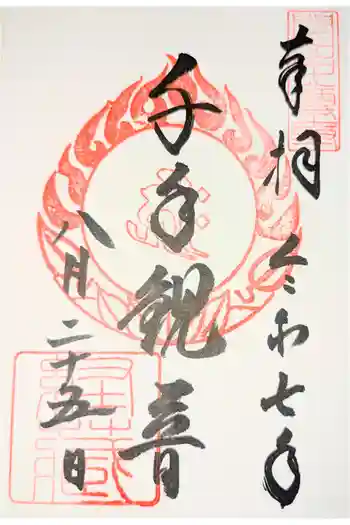 奉拝 令和七年
千手観音
八月二十五日